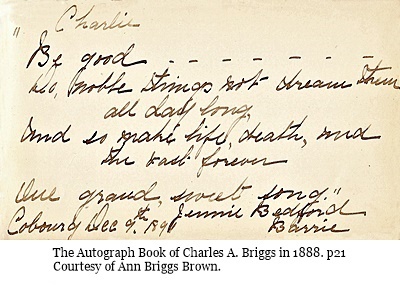 " Charlie
Be good - - - - - - -
Do, noble things not dream them
all day long,
And so make life, death, and
the vast forever
One grand, sweet song."
Jennie Bedford
Cobourg Dec 9th 1890 Barrie
The Autograph Book of Charles A. Briggs in 1888. p21
Courtesy of Ann Briggs Brown.